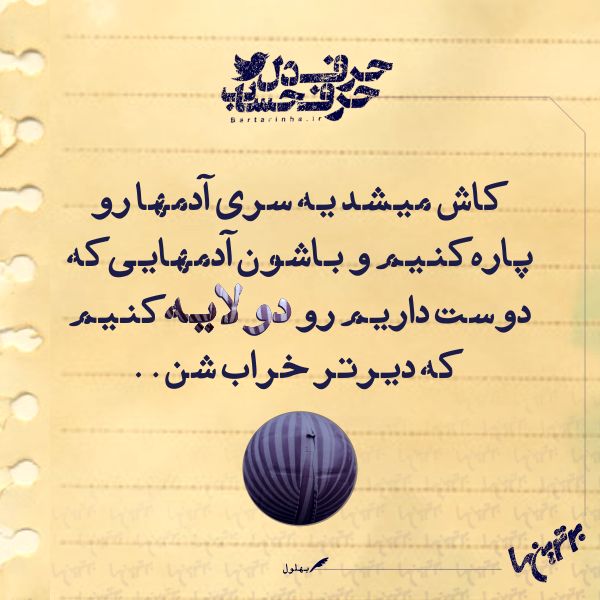 حرف دل
حرف حساب
Bartarinha.ir
کاش میشد یه سری آدمها رو
پاره کنیم و باشون آدمهایی که
دوست داریم رو دو لایه کنیم
که دیرتر خراب شن..
برترین‌ها
بهلول